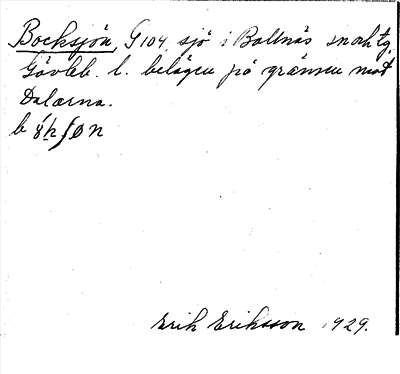 Bocksjön, G104, sjö i Bollnäs snoch tg,
Gävleb. l. belägen på gränsen mot
Dalarna.
Erik Eriksson 1929.